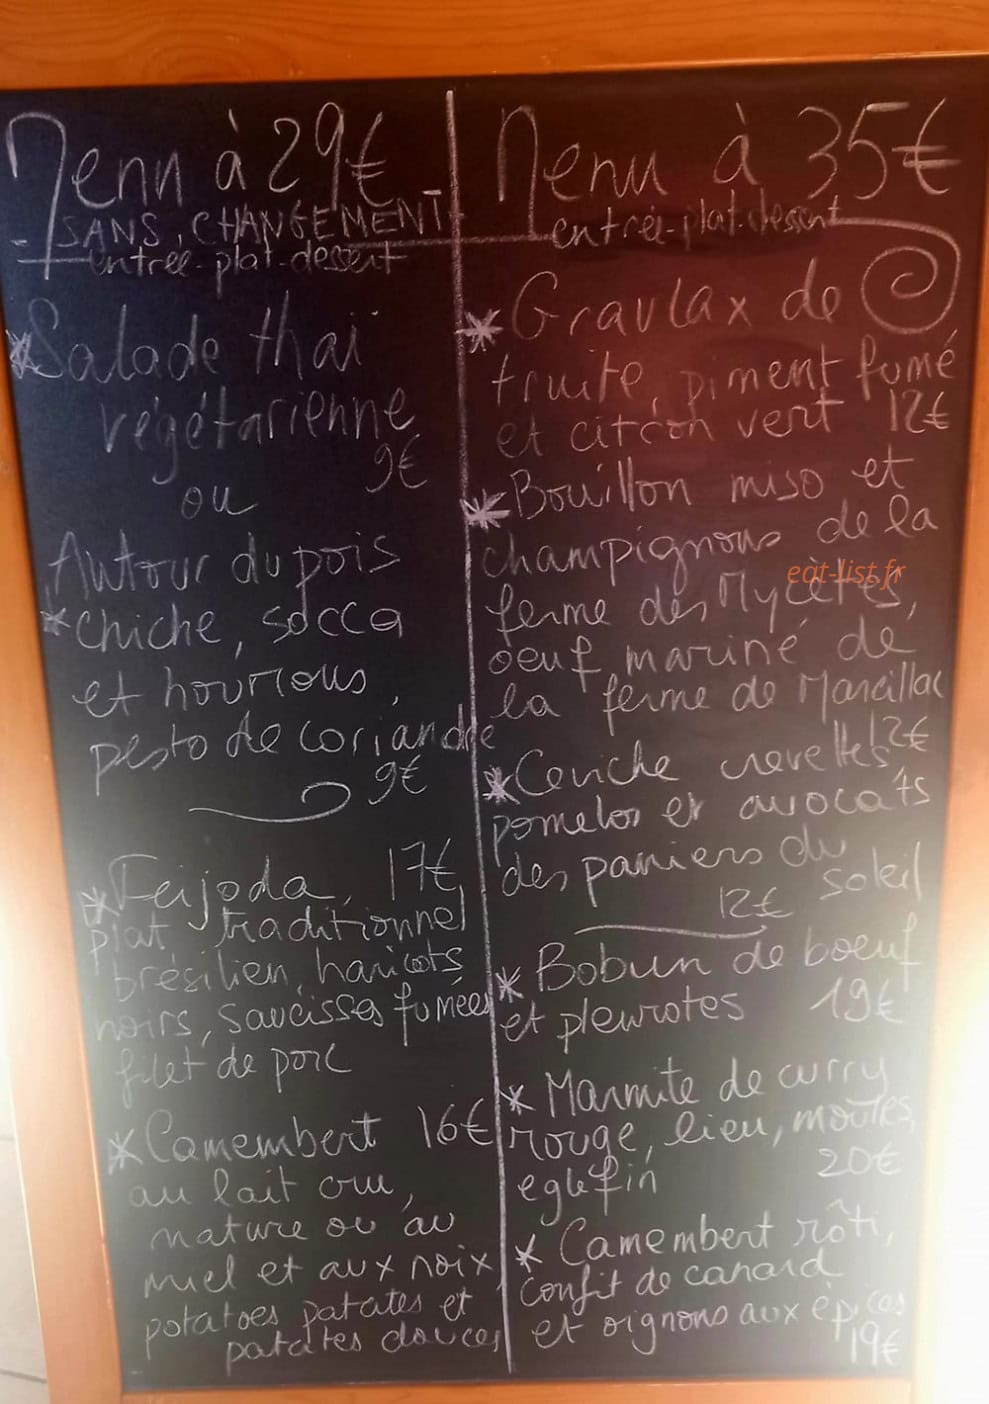 Menu à 29€
- SANS CHANGEMENT -
entrée-plat-dessert
*Salade thaï
végétarienne
9€
ou
Autour du pois
*chiche, socca
et houmous,
pesto de coriandre
9€
*Feijoda, 17€
plat traditionnel
brésilien, haricots
noirs, saucisses fumées
filet de porc
*Camembert 16€
au lait cru,
nature ou au
miel et aux noix
potatoes patates et
patates douces
Menu à 35€
entrée-plat-dessert
*Gravlax de
truite, piment fumé
et citron vert 12€
*Bouillon miso et
champignons de la
ferme des Mycètes,
oeuf mariné de
la ferme de Marcillac
12€
*Ceviche crevettes
pomelos et avocats
des paniers du
soleil
12€
*Bobun de boeuf
et pleurotes 19€
*Marmite de curry
rouge, lieu, moules,
20€
eglefin
*Camembert rôti,
confit de canard
et oignons aux épices
19€
eat-list.fr